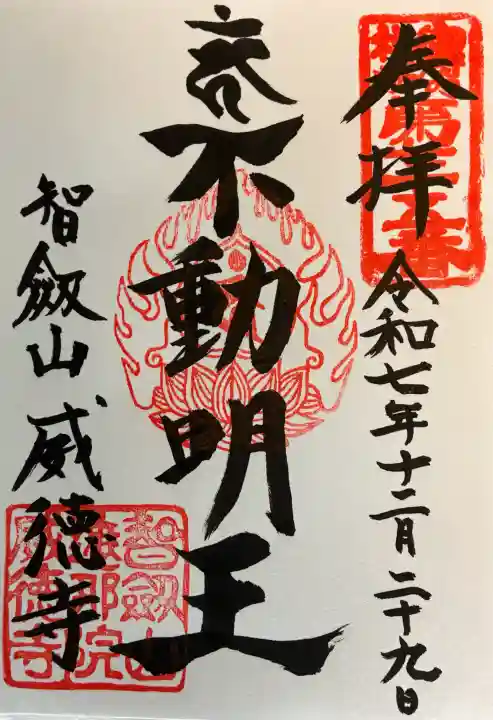 奉拝
令和七年十二月二十九日
不動明王
智劔山威徳寺
智劔山
無那院
威徳寺